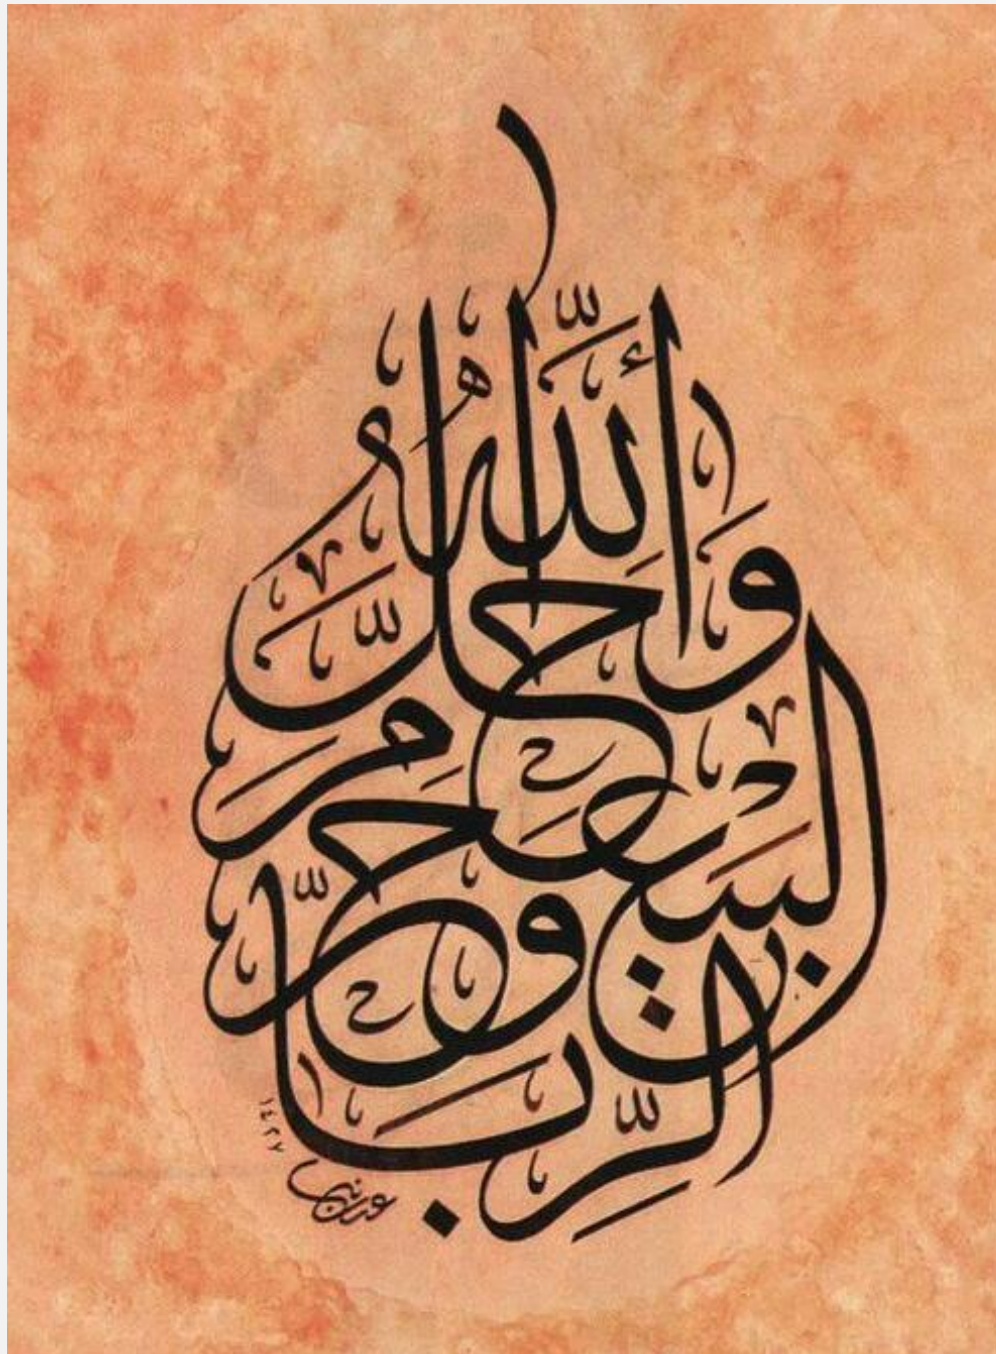 وَأَحَلَّ اللّٰهُ الْبَيْعَ وَحَرَّمَ الرِّبَا
١٤٢٧